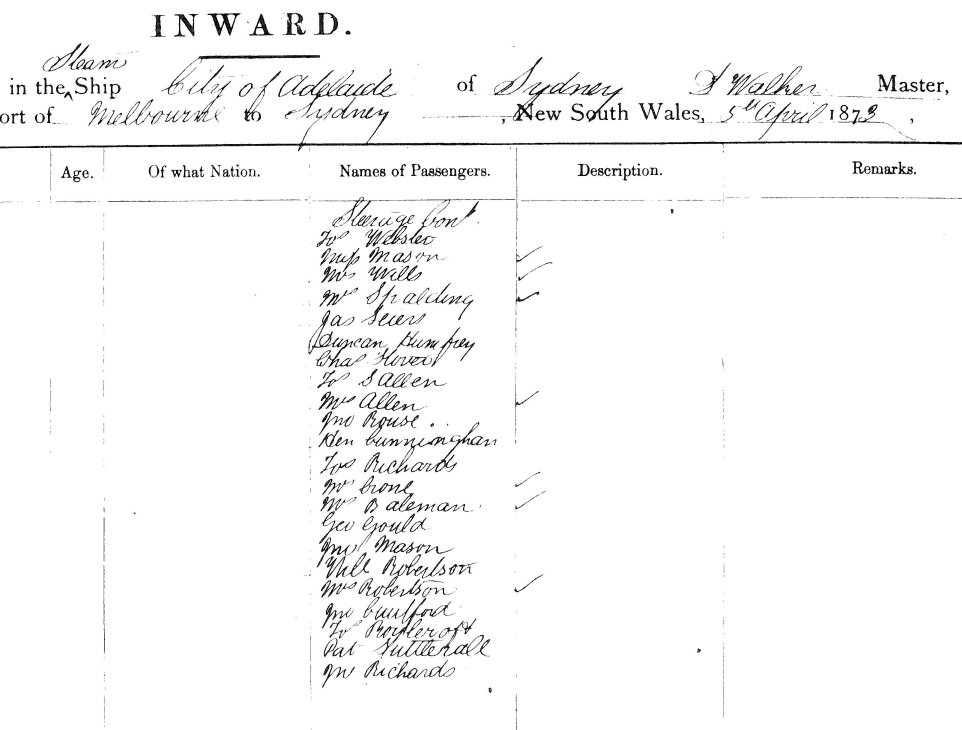 INWARD.
Steam
in the Ship City of Adelaide of Sydney D Walker Master,
ort of Melbourne to Sydney, New South Wales, 5th April 1873,
Age. Of what Nation. Names of Passengers. Description. Remarks.
Steerage Cont
Jos Webster
Miss Mason
Mrs Wills
Mrs Spalding
Jas Seiers
Duncan Humfrey
Chas
Jos S Allen
Mrs Allen
Jno Rouse
Hen Cunninghan
Jos Richards
Mrs Crone
Mrs Bateman
Geo Gould
Jno Mason
Will Robertson
Mrs Robertson
Jno
Jos
Pat
Jno Richards